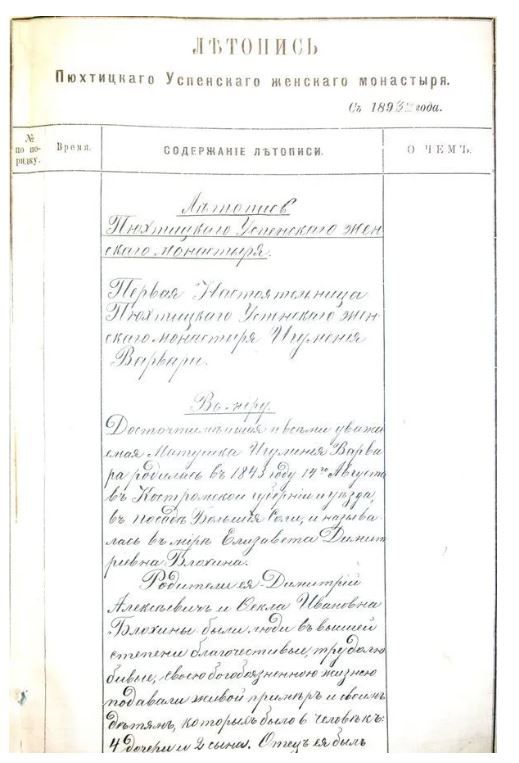 ЛѢТОПИСЬ
Пюхтицкаго Успенскаго женскаго монастыря.
Съ 1893 года.
№ по по-рядку.
Время.
СОДЕРЖАНІЕ ЛѢТОПИСИ.
О ЧЕМЪ.
Лѣтопись
Пюхтицкаго Успенскаго жен-
скаго монастыря.
Первая Настоятельница
Пюхтицкаго Успенскаго жен-
скаго монастыря Игуменія
Варвара.
Въ міру.
Досточтимѣйшая и всѣми уважа
емая Матушка Игуменія Варва
ра родилась въ 1843 году 14го Августа
въ Костромской губерніи и уѣзда,
въ посадѣ Большія Соли, и называ
лась въ мірѣ Елизавета Димит
ріевна Блохина.
Родители ея - Димитрій
Алексѣевичъ и Ѳекла Ивановна
Блохины были люди въ высшей
степени благочестивые, трудолю
бивые; своею богобоязненною жизнею
подавали живой примѣръ и своимъ
дѣтямъ, которыхъ было 6 человѣкъ:
4 дочери и 2 сына. Отецъ ея былъ